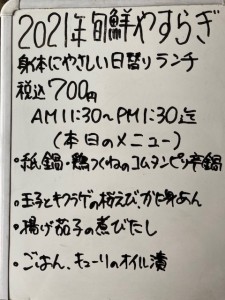 2021年旬鮮やすらぎ
身体にやさしい日替りランチ
税込700円
AM11:30〜PM1:30迄
(本日のメニュー)
・紙鍋・鶏つくねのコムタンピリ辛鍋
・玉子とキクラゲの桜えび、カニ身あん
・揚げ茄子の煮びたし
・ごはん、キューリのオイル漬